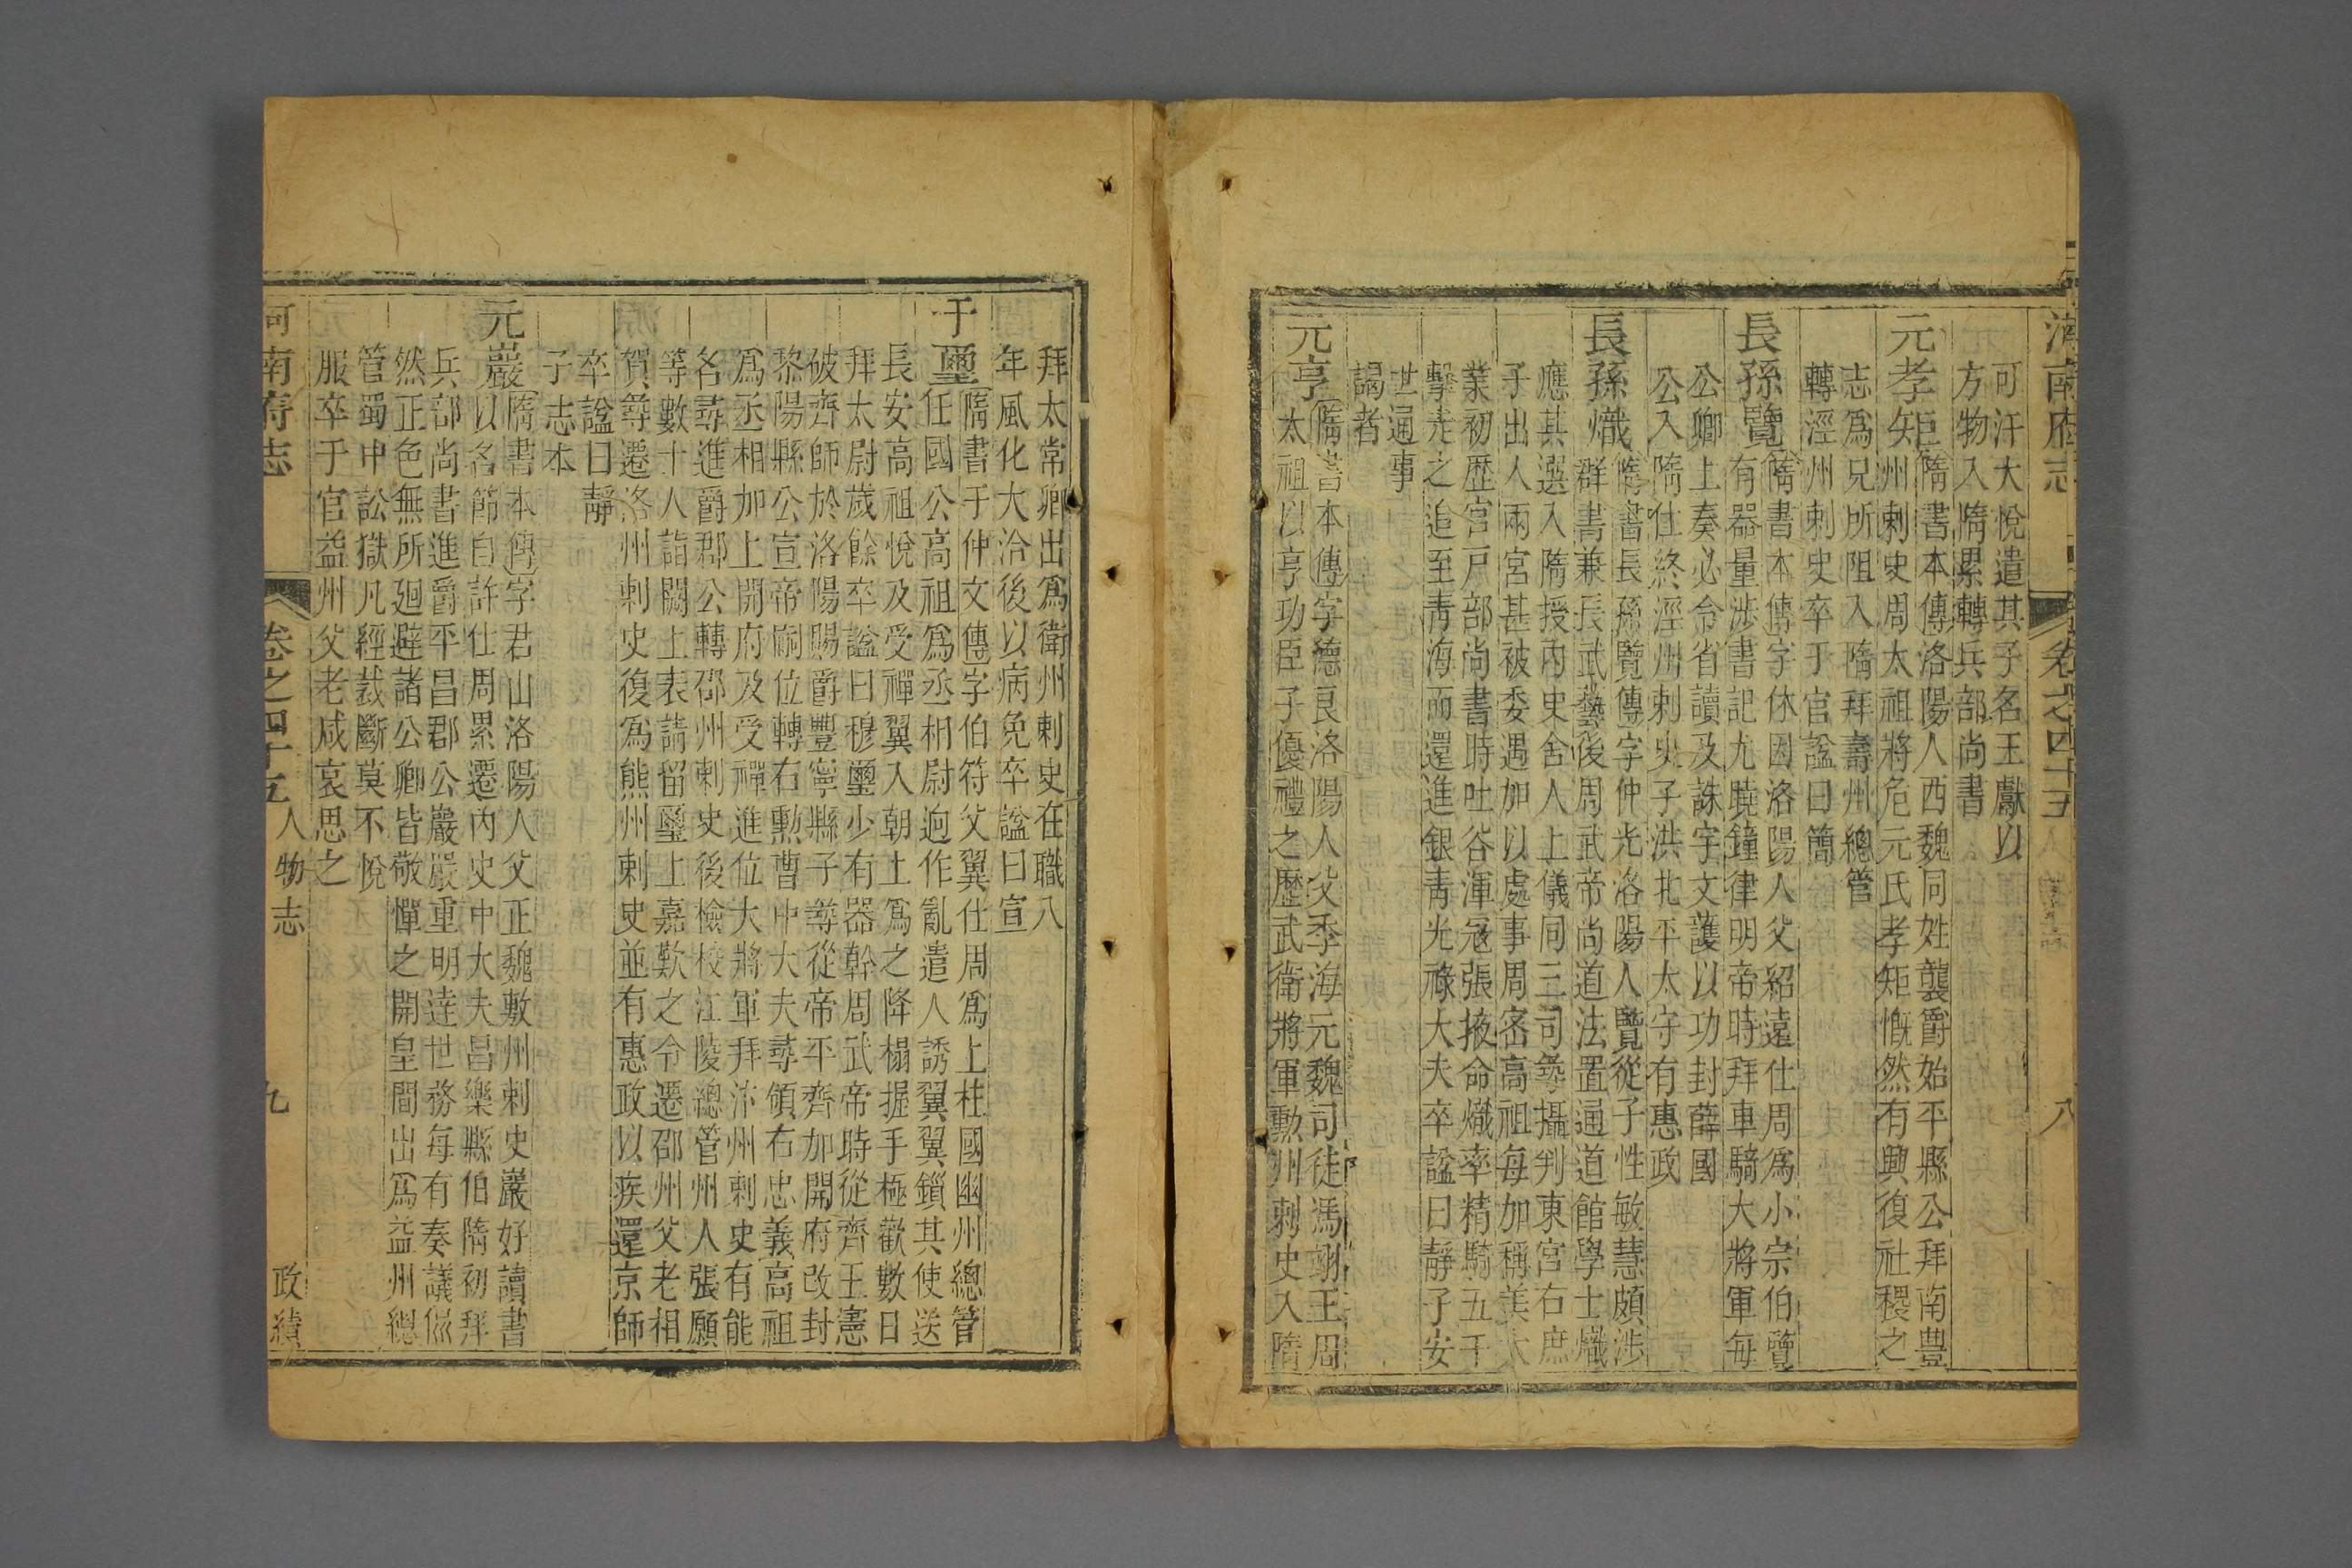 河南府志 卷之四十五 人物志 八
可汗大悅遣其子名王獻以
方物入隋累轉兵部尚書
元孝矩隋書本傳洛陽人西魏同姓襲爵始平縣公拜南豐
州刺史周太祖將危元氏孝矩慨然有興復社稷之
志爲兄所阻入隋拜壽州總管
轉涇州刺史卒于官諡曰簡
長孫覽隋書本傳字休因洛陽人父紹遠仕周爲小宗伯覽
有器量涉書記尤曉鐘律明帝時拜車騎大將軍每
公卿上奏必令省讀及誅宇文護以功封薛國
公入隋仕終涇州刺史子洪北平太守有惠政
長孫熾隋書長孫覽傳字仲光洛陽人覽從子性敏慧頗涉
群書兼長武藝後周武帝尚道法置通道館學士熾
應其選入隋授內史舍人上儀同三司尋攝判東宮右庶
子出入兩宮甚被委遇加以處事周密高祖每加稱美大
業初歷宮戸部尚書時吐谷渾寇張掖命熾率精騎五千
擊走之追至青海而還進銀青光祿大夫卒諡曰靜子安
世通事
謁者
元亨隋書本傳字德良洛陽人父季海元魏司徒馮翊王周
太祖以亨功臣子優禮之歷武衛將軍勳州刺史入隋
拜太常卿出爲衛州刺史在職八
年風化大洽後以病免卒諡曰宣
于璽隋書于仲文傳字伯符父翼仕周爲上柱國幽州總管
任國公高祖爲丞相尉迥作亂遣人誘翼翼鎖其使送
長安高祖悅及受禪翼入朝上爲之降榻握手極歡數日
拜太尉歲餘卒諡曰穆璽少有器幹周武帝時從齊王憲
破齊師於洛陽賜爵豐寧縣子尋從帝平齊加開府改封
黎陽縣公宣帝嗣位轉右勳曹中大夫尋領右忠義高祖
爲丞相加上開府及受禪進位大將軍拜汴州刺史有能
名尋進爵郡公轉邵州刺史後檢校江陵總管州人張願
等數十人詣闕上表請留璽上嘉歎之令還邵州父老相
賀尋遷洛州刺史復爲熊州刺史並有惠政以疾還京師
卒諡曰靜
子志本
元巖隋書本傳字君山洛陽人父正魏敷州刺史巖好讀書
以名節自許仕周累遷內史中大夫昌樂縣伯隋初拜
兵部尚書進爵平昌郡公巖嚴重明達世務每有奏議侃
然正色無所廻避諸公卿皆敬憚之開皇間出爲益州總
管蜀中訟獄凡經裁斷莫不悅
服卒于官益州父老咸哀思之
河南府志 卷之四十五 人物志 九 政績